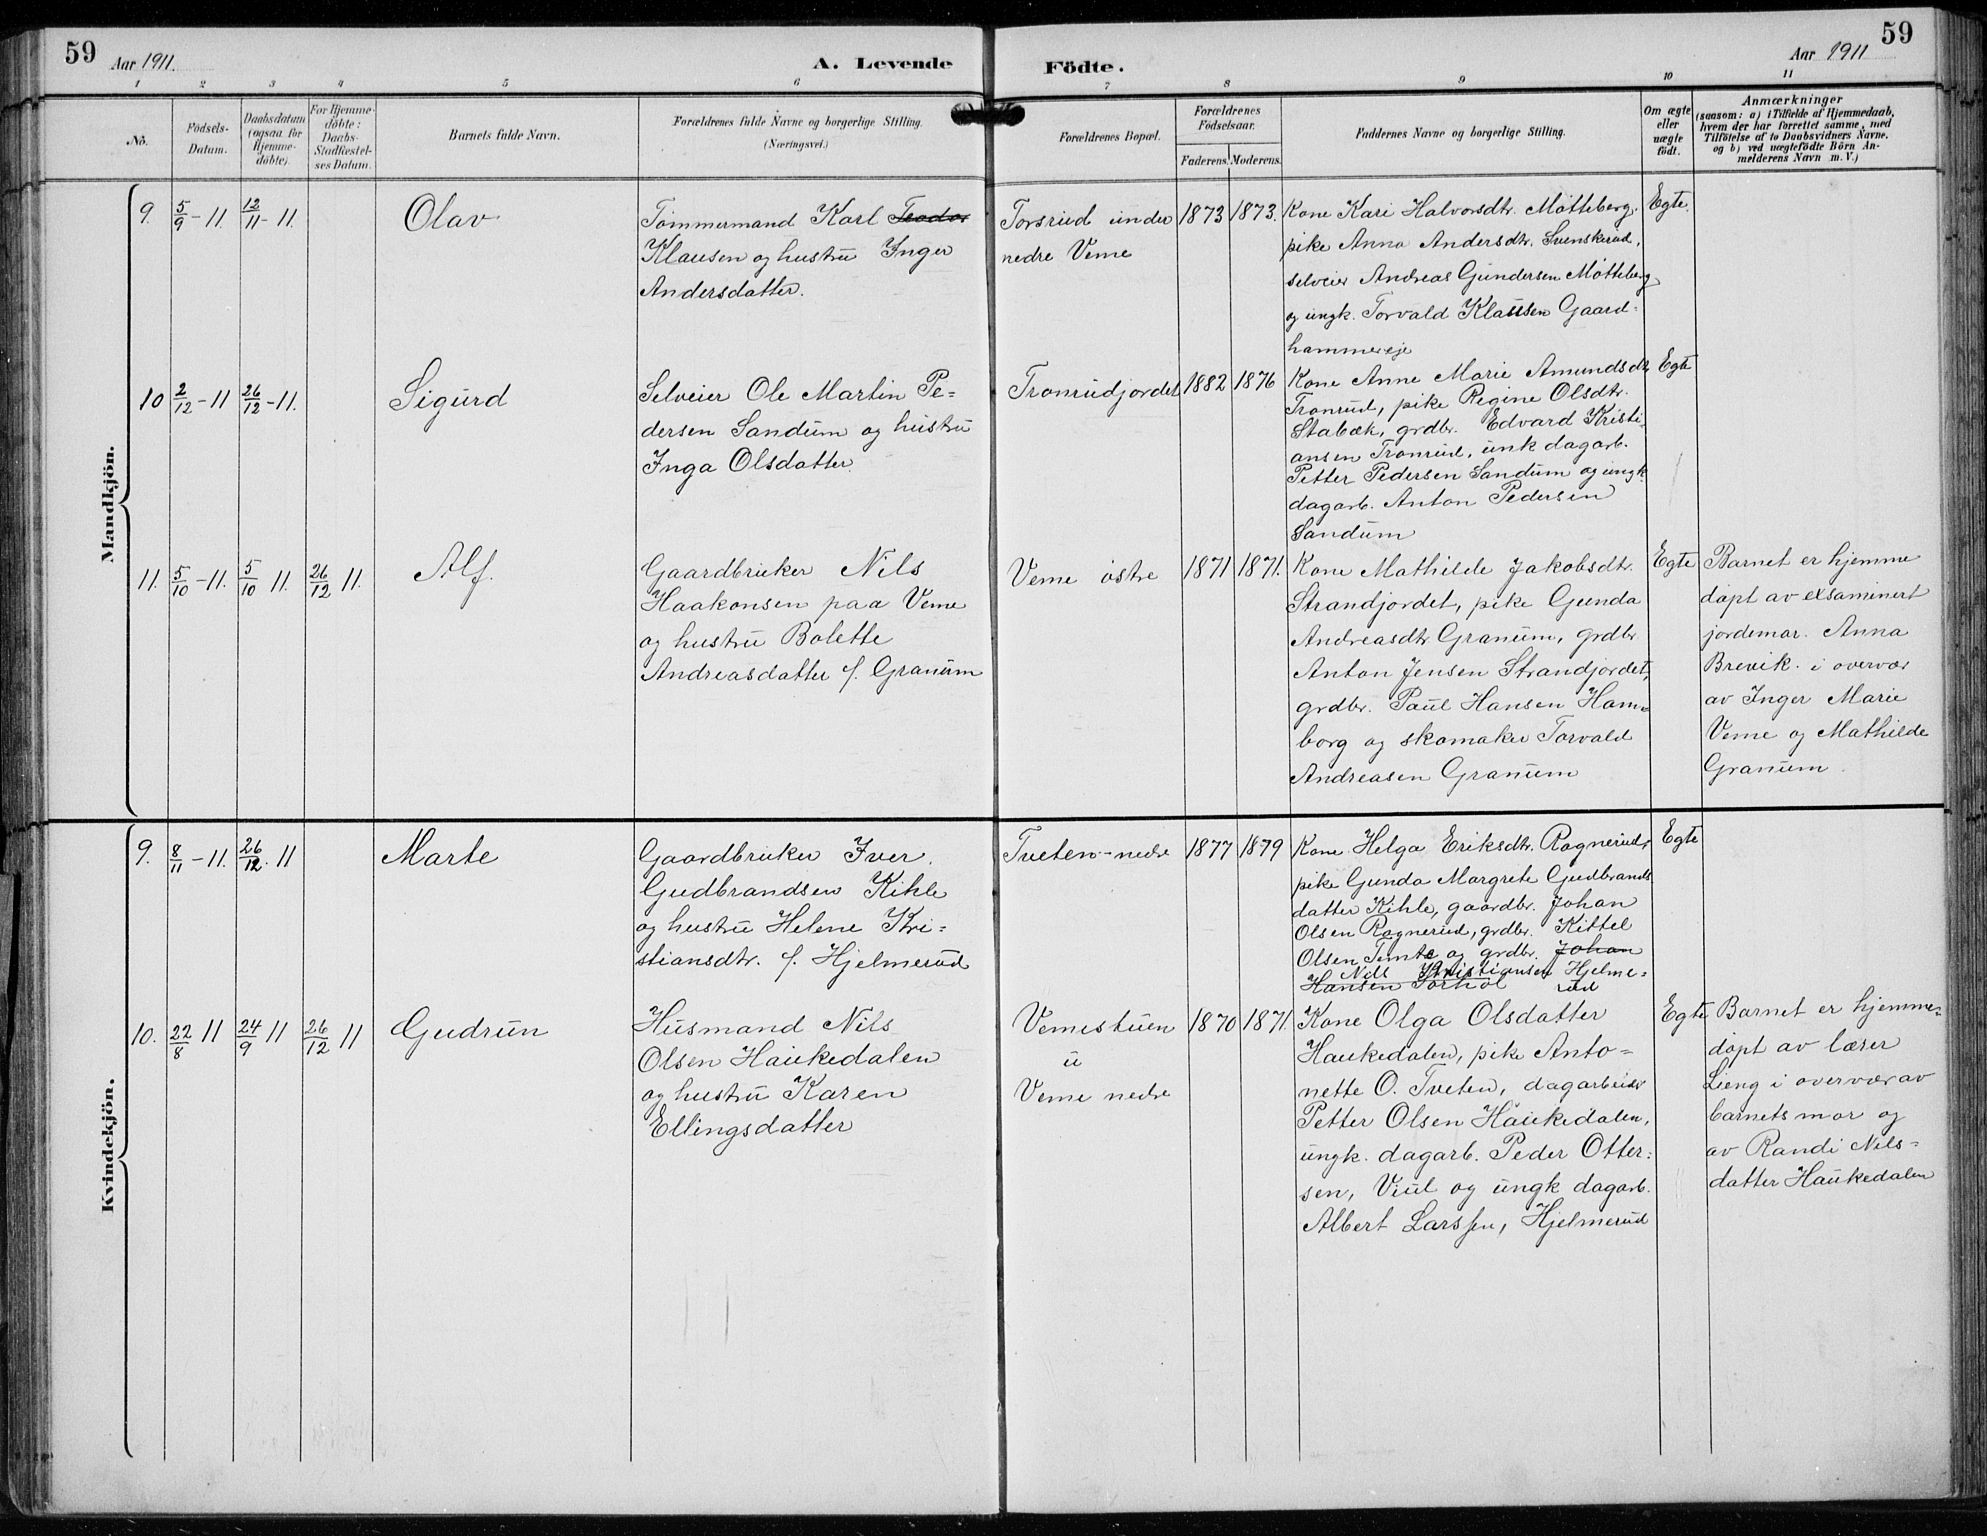 59
Aar 1911.
A. Levende
Födte.
Aar 1911
59
1 2 3 4 5 6 7 8 9 10 11
No.
Födsels-
Datum.
Daabsdatum
(ogsaa for
Hjemme-
döbte).
For Hjemme-
döbte:
Daabs-
Stadfæstel-
ses Datum.
Barnets fulde Navn.
Forældrenes fulde Navne og borgerlige Stilling.
(Næringsvei.)
Forældrenes Bopæl.
Forældrenes
Födselsaar.
Faderens. Moderens.
Faddernes Navne og borgerlige Stilling.
Om ægte
eller
uægte
födt.
Anmærkninger
(saasom: a) i Tilfælde af Hjemmedaab,
hvem der har forrettet samme, med
Tilföielse af to Daabsvidners Navne.
og b) ved uægtefödte Börn An-
melderens Navn m. V.)
Mandkjön.
9.
5/9 - 11
12/11 - 11
Olav
Tømmermand Karl Teodor
Klausen og hustru Inger
Andersdatter.
Torsrud under
nedre Veme
1873
1873.
Kone Kari Halvorsdtr. Møtteberg,
pike Anna Andersdtr. Svenskerud,
selveier Andreas Gundersen Møtteberg
og ungk. Torvald Klausen Gaard-
hammereje
Egte.
10
2/12 - 11
26/12 - 11.
Sigurd
Selveier Ole Martin Pe-
dersen Sandum og hustru
Inga Olsdatter
Tronrudjordet
1882
1876
Kone Anne Marie Amundsdtr
Tronrud, pike Regine Olsdtr.
Stabæk, grdbr. Edvard Kristi-
ansen Tronrud, unk dagarb.
Petter Pedersen Sandum og ungk.
dagarb. Anton Pedersen
Sandum
Egte
11.
5/10 - 11.
5/10 11.
26/12 11.
Alf.
Gaardbruker Nils
Haakonsen paa Veme
og hustru Bolette
Andreasdatter f. Granum
Veme østre
1871
1871.
Kone Mathilde Jakobsdtr.
Strandjordet, pike Gunda
Andreasdtr Granum, grdbr
Anton Jensen Strandjordet,
grdbr. Paul Hansen Ham-
borg og skomaker Torvald
Andreasen Granum
Egte
Barnet er hjemme
døpt av exsaminert
jordemor. Anna
Brevik. i overvær
av Inger Marie
Veme og Mathilde
Granum.
Kvindekjön.
9.
8/11 - 11.
26/12. 11
Marte
Gaardbruker Iver
Gudbrandsen Kihle
og hustru Helene Kri-
stiansdtr. f. Hjelmerud
Tveten - nedre
1877
1879
Kone Helga Eriksdtr. Rognerud,
pike Gunda Margrete Gudbrands
datter Kihle, gaardbr. Johan
Olsen Rognerud, grdbr. Kittel
Olsen Tomte og grdbr. Johan
Nils Kristiansen Hjelme-
Hansen Sørhol rud
Egte
10.
22/8 11
24/9 11
26/12 11
Gudrun
Husmand Nils
Olsen Haukedalen
og hustru Karen
Ellingsdatter
Vemestuen
u
Veme nedre
1870
1871.
Kone Olga Olsdatter
Haukedalen, pike Anto-
nette O. Tveten, dagarbeider
Petter Olsen Haukedalen,
ungk. dagarb. Peder Otter-
sen, Viul og ungk dagarb.
Albert Larssen, Hjelmerud
Egte
Barnet er hjemme-
døpt av lærer
Lieng i overvær av
barnets mor og
av Randi Nils-
datter Haukedalen